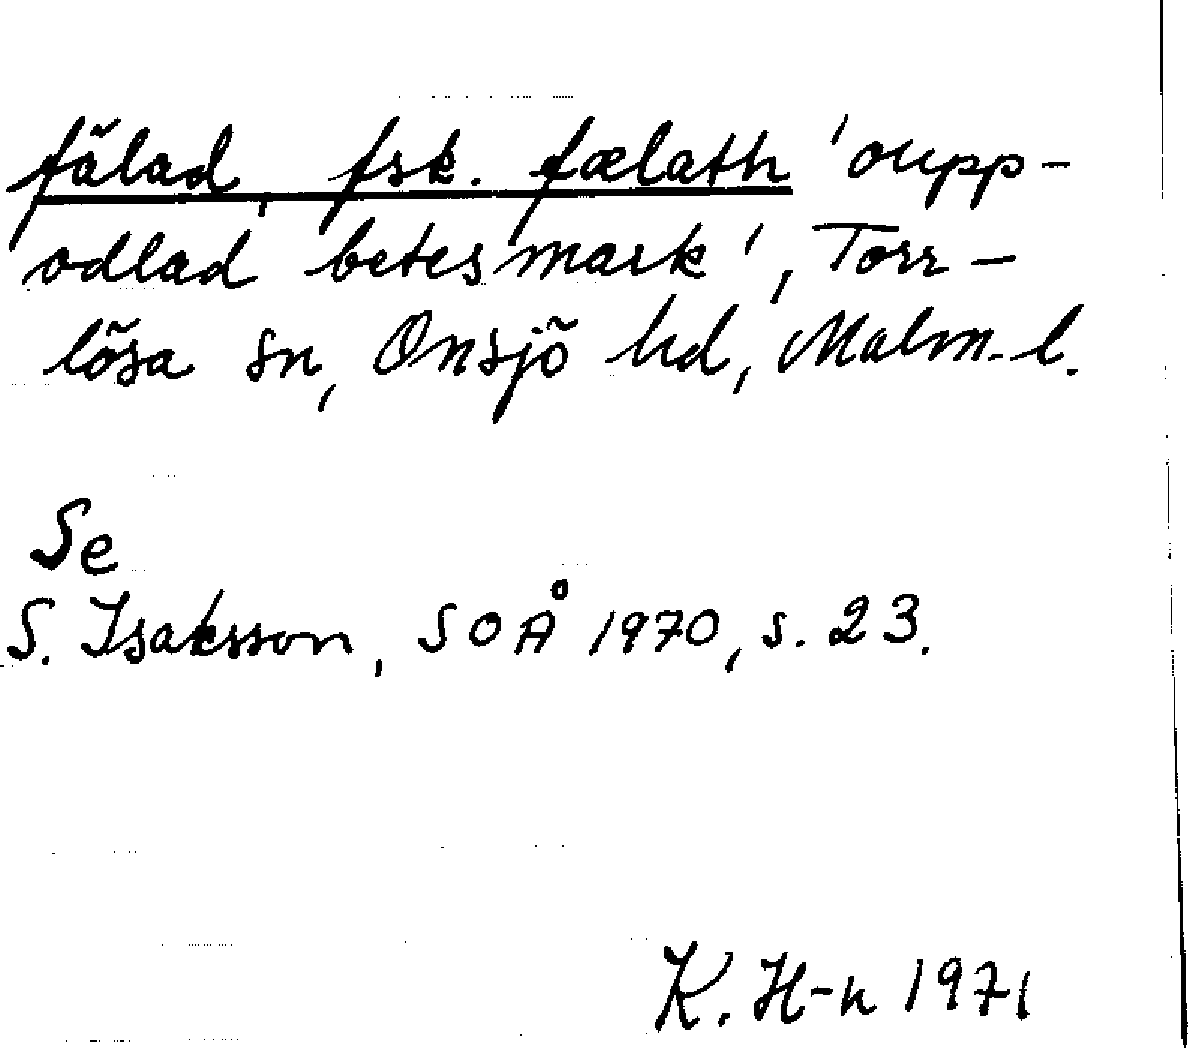 fälad, fsk. fælath 'oupp-
odlad betesmark', Torr-
lösa sn, Onsjö hd, Malm. l.
Se
S. Isaksson, SOÅ 1970, s. 23.
K. H-n 1971